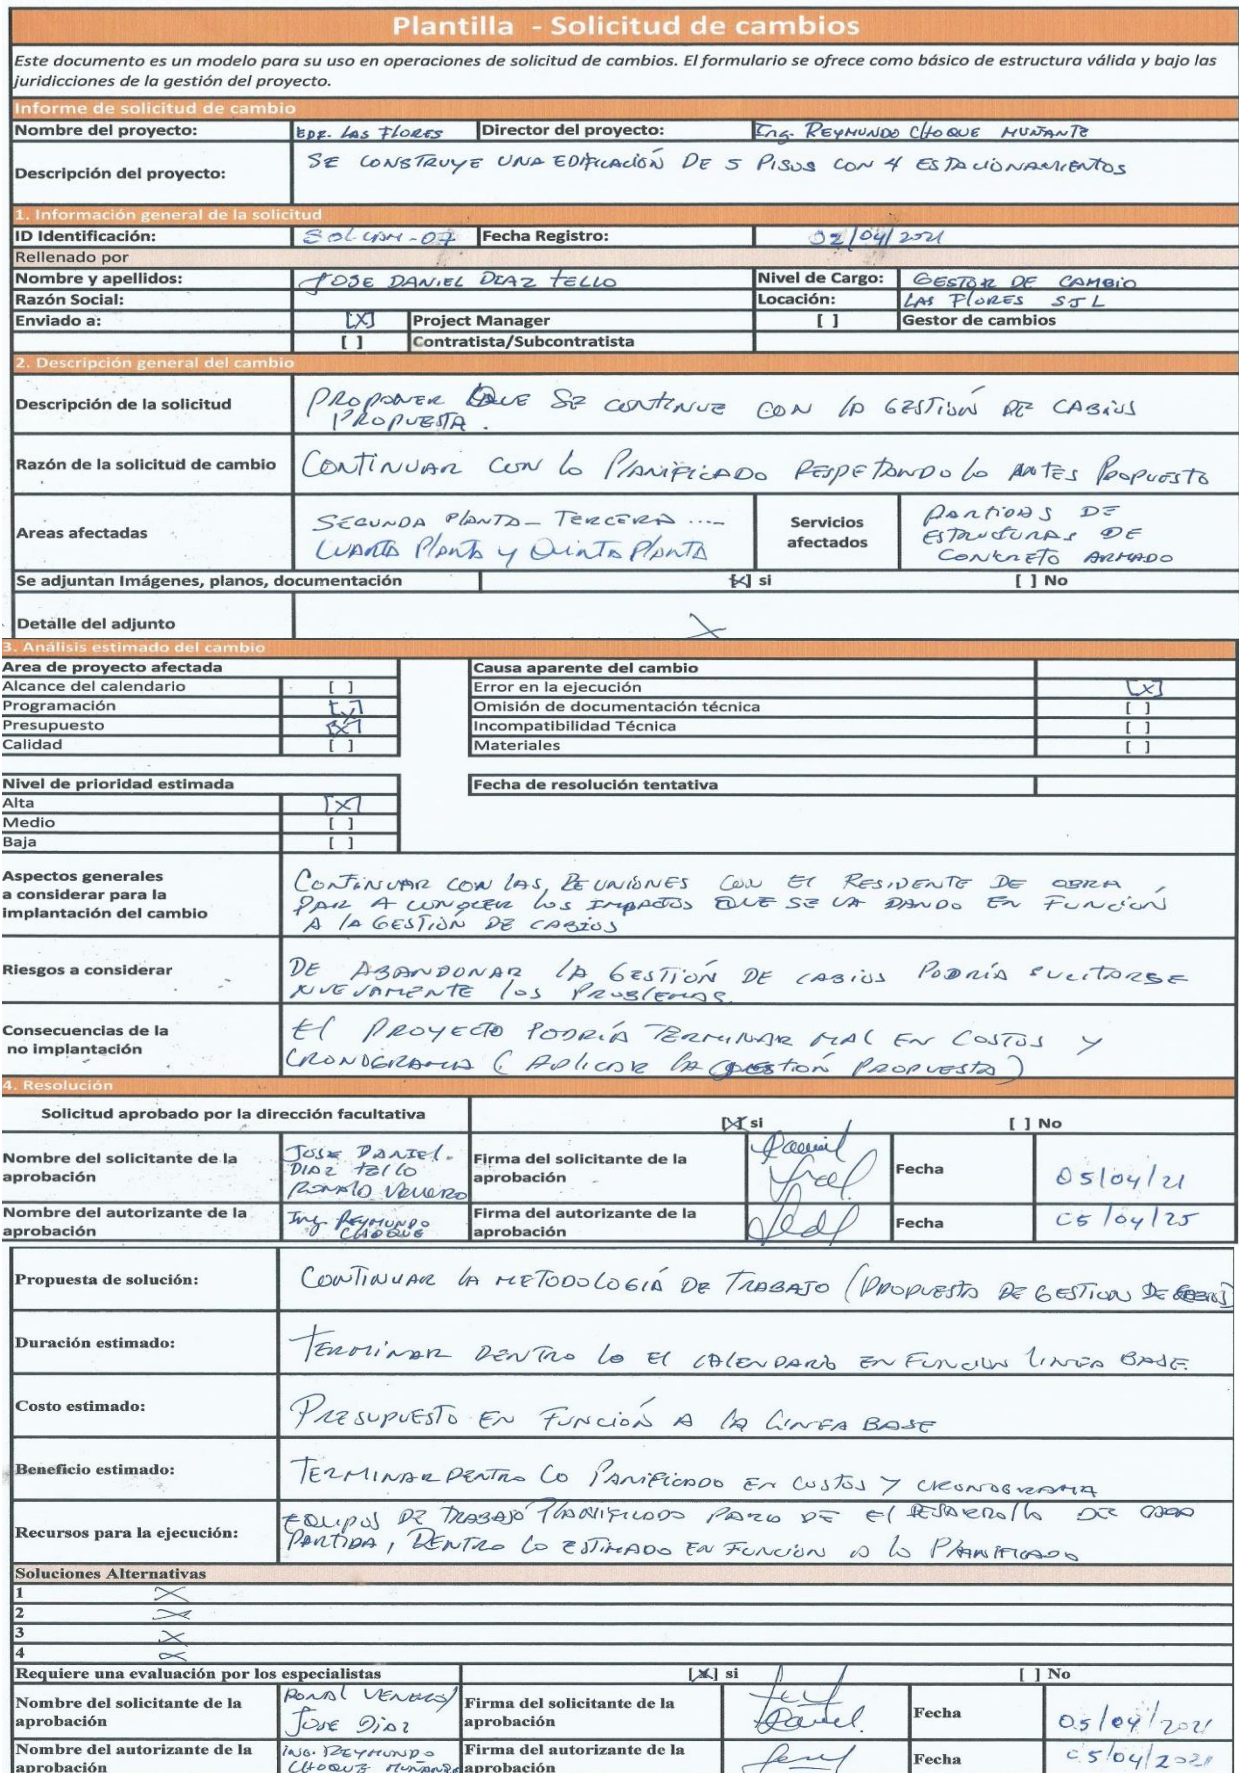 Plantilla - Solicitud de cambios
Este documento es un modelo para su uso en operaciones de solicitud de cambios. El formulario se ofrece como básico de estructura válida y bajo las
juridicciones de la gestión del proyecto.
Informe de solicitud de cambio
Nombre del proyecto: EDF. LAS FLORES Director del proyecto: Ing. REYMUNDO CHOQUE MUÑANTE
Descripción del proyecto: SE CONSTRUYE UNA EDIFICACIÓN DE 5 PISOS CON 4 ESTACIONAMIENTOS
1. Información general de la solicitud
ID Identificación: SOLCAM-07 Fecha Registro: 02/04/2021
Rellenado por
Nombre y apellidos: JOSE DANIEL DIAZ TELLO Nivel de Cargo: GESTOR DE CAMBIO
Razón Social: Locación: LAS FLORES SJL
Enviado a: [X] Project Manager [ ] Gestor de cambios
[ ] Contratista/Subcontratista
2. Descripción general del cambio
Descripción de la solicitud PROPONER QUE SE CONTINUE CON LA GESTIÓN DE CABIOS
PROPUESTA.
Razón de la solicitud de cambio CONTINUAR CON LO PLANIFICADO RESPETANDO LO ANTES PROPUESTO
Areas afectadas SEGUNDA PLANTA - TERCERA ....
CUARTA PLANTA Y QUINTA PLANTA
Servicios
afectados
PARTIDAS DE
ESTRUCTURAS DE
CONCRETO ARMADO
Se adjuntan Imágenes, planos, documentación [X] si [ ] No
Detalle del adjunto X
3. Análisis estimado del cambio
Area de proyecto afectada Causa aparente del cambio
Alcance del calendario [ ] Error en la ejecución [X]
Programación [X] Omisión de documentación técnica [ ]
Presupuesto [X] Incompatibilidad Técnica [ ]
Calidad [ ] Materiales [ ]
Nivel de prioridad estimada Fecha de resolución tentativa
Alta [X]
Medio [ ]
Baja [ ]
Aspectos generales
a considerar para la
implantación del cambio
CONTINUAR CON LAS REUNIONES CON El RESIDENTE DE OBRA
PAR A CONOCER LOS IMPACTOS QUE SE VA DANDO EN FUNCIÓN
A LA GESTIÓN DE CABIOS
Riesgos a considerar DE ABANDONAR LA GESTIÓN DE CABIOS PODRÍA SUCITARSE
NUEVAMENTE los PROBLEMAS
Consecuencias de la
no implantación
El PROYECTO PODRÍA TERMINAR MAL EN COSTOS Y
CRONOGRAMA (APLICAR LA GESTIÓN PROPUESTA)
4. Resolución
Solicitud aprobado por la dirección facultativa [X] si [ ] No
Nombre del solicitante de la
aprobación
JOSE DANIEL.
DIAZ TELLO
RONALD VENERO
Firma del solicitante de la
aprobación
Fecha 05/04/21
Nombre del autorizante de la
aprobación
Ing. REYMUNDO
CHOQUE
Firma del autorizante de la
aprobación
Fecha 05/04/25
Propuesta de solución: CONTINUAR LA METODOLOGIÁ DE TRABAJO (PROPUESTA DE GESTION DE CABIOS)
Duración estimado: TERMINAR DENTRO lo El CALENDARIO EN FUNCION LINEA BASE.
Costo estimado: PRESUPUESTO EN FUNCIÓN A LA LINEA BASE
Beneficio estimado: TERMINAR DENTRO LO PANIFICADO EN COSTOS Y CRONOGRAMA
Recursos para la ejecución: EQUIPOS DE TRABAJO PLANIFICADO PARA DE El DESARROLLO DE CADA
PARTIDA, DENTRO LO ESTIMADO EN FUNCION A LO PLANIFICADO
Soluciones Alternativas
1 X
2 X
3 X
4 X
Requiere una evaluación por los especialistas [X] si [ ] No
Nombre del solicitante de la
aprobación
RONAL VENERO/
JOSE DIAZ
Firma del solicitante de la
aprobación
Fecha 05/04/2021
Nombre del autorizante de la
aprobación
ING. REYMUNDO
CHOQUE MUÑANTE
Firma del autorizante de la
aprobación
Fecha 05/04/2021